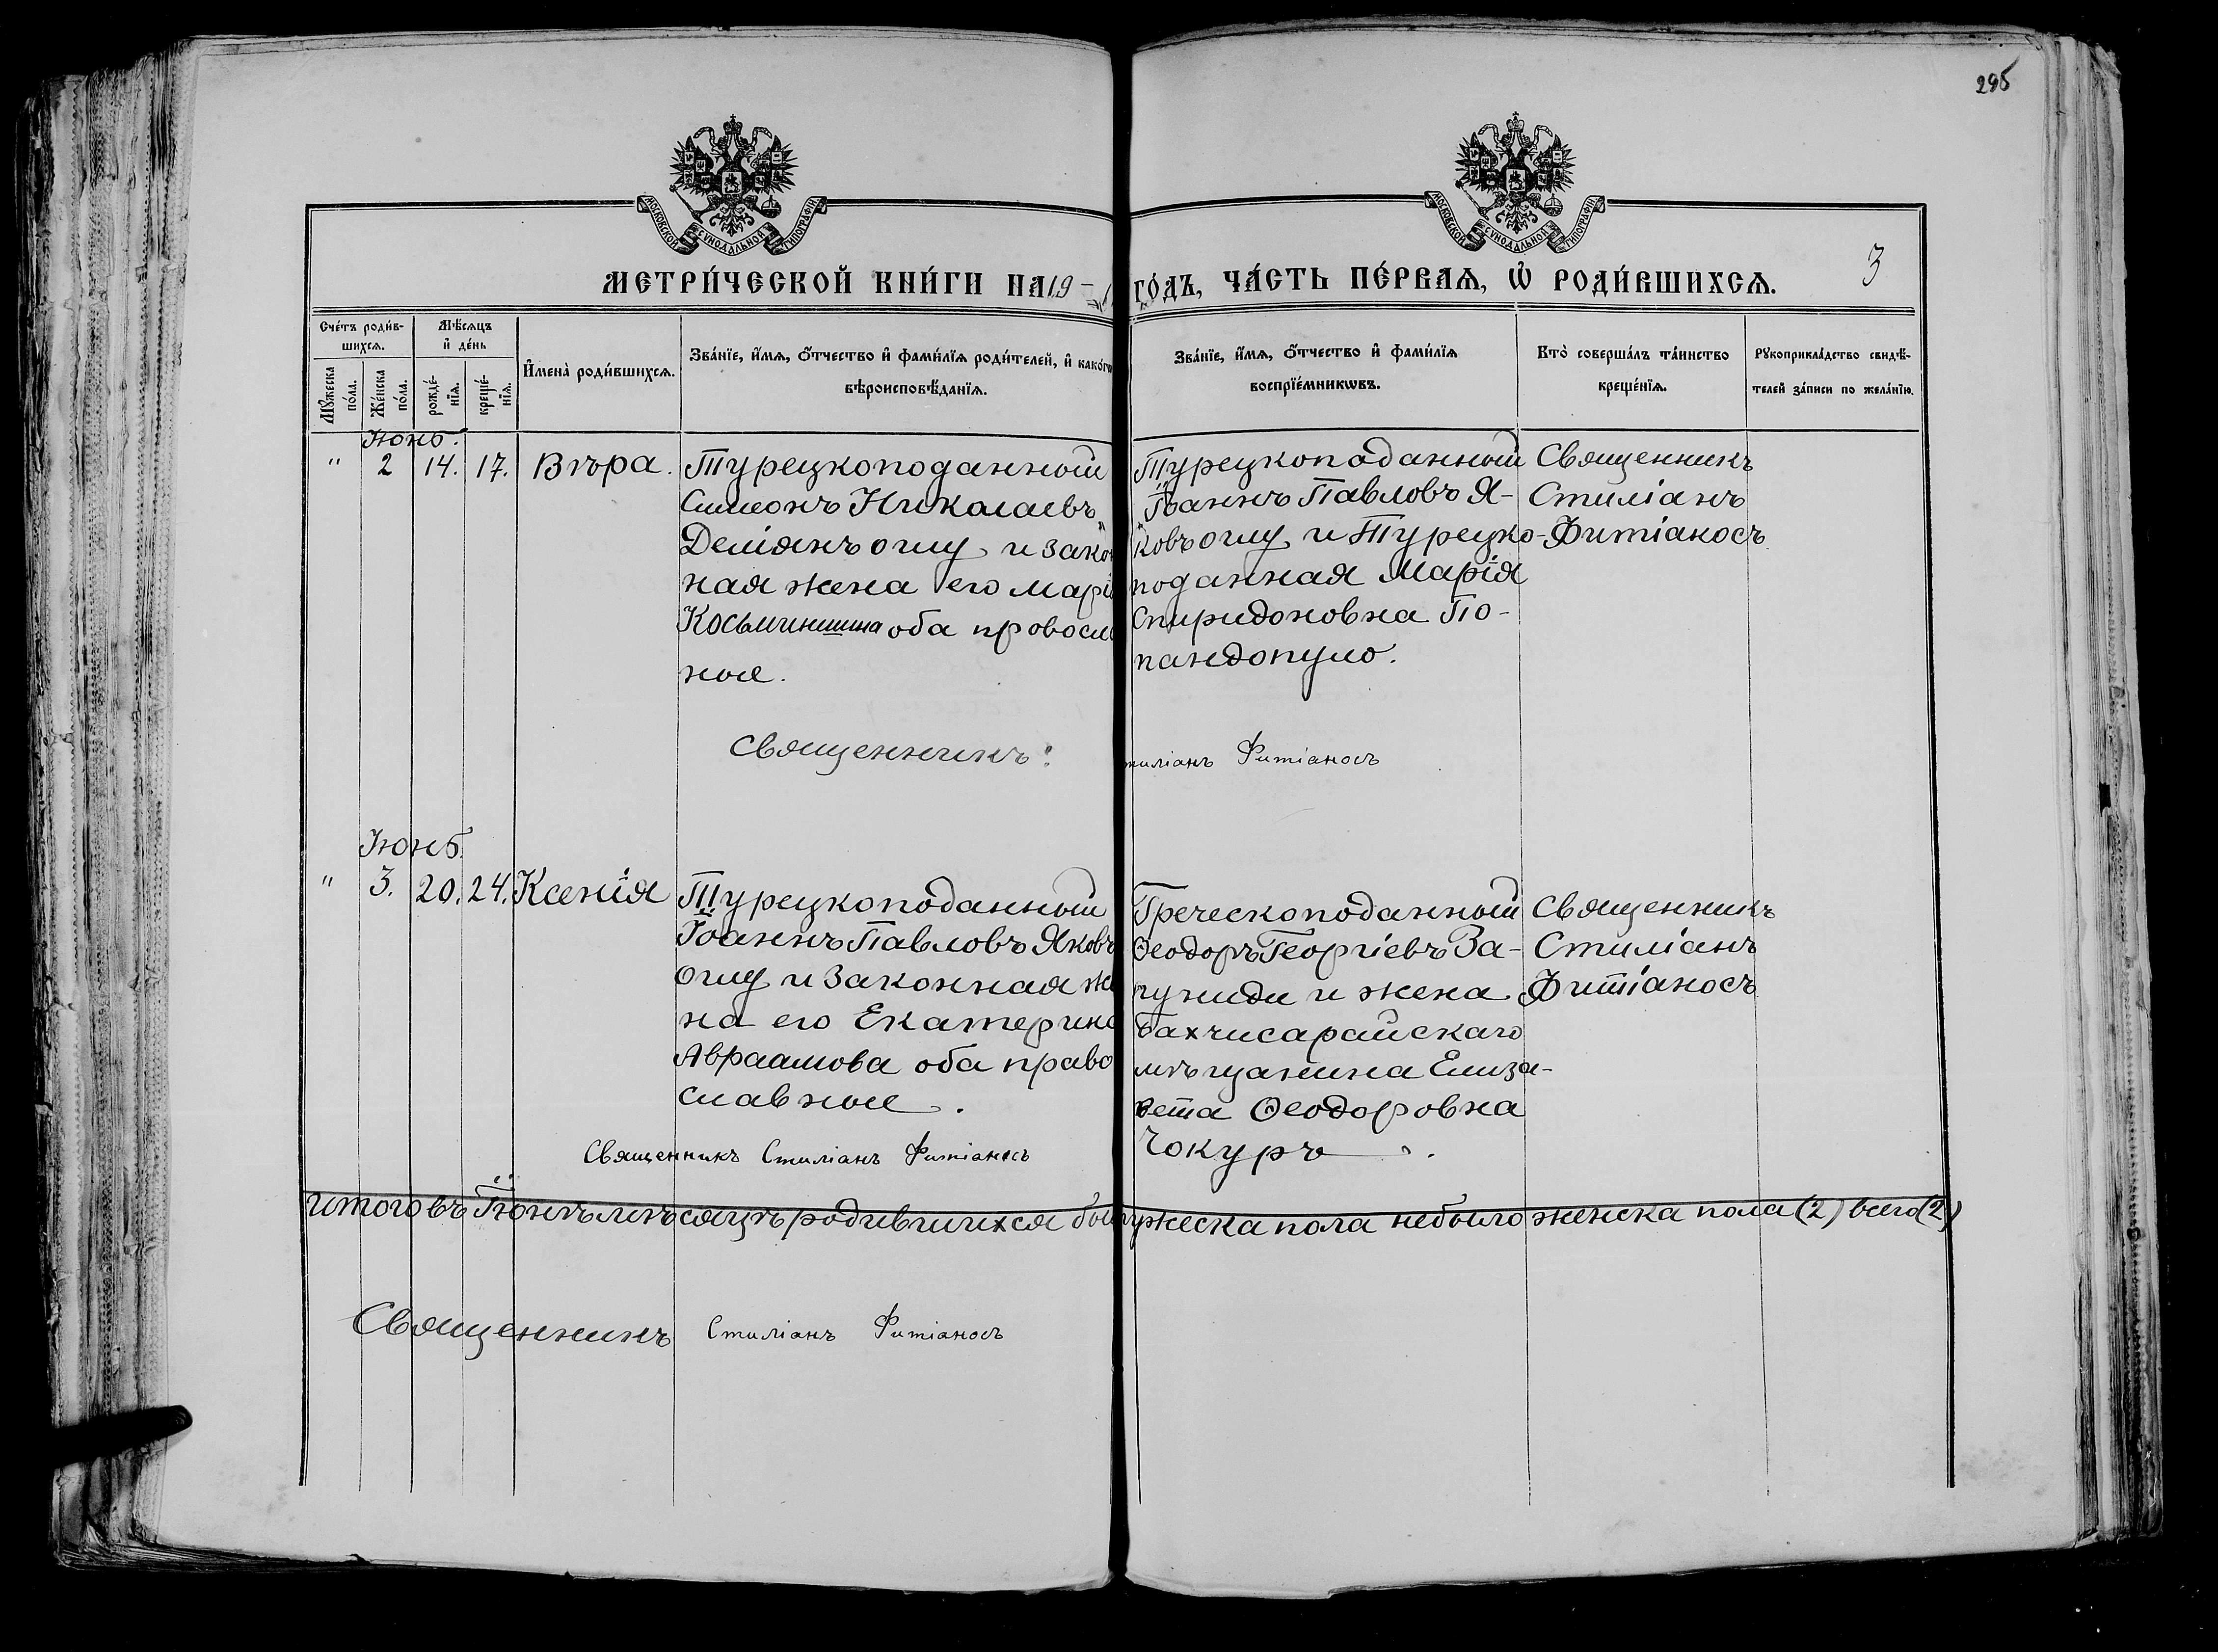 295
МОСКОВСКОЙ СУНОДАЛЬНОЙ ТИПОГРАФІИ
МОСКОВСКОЙ СУНОДАЛЬНОЙ ТИПОГРАФІИ
МЕТРИ́ЧЕСКОЙ КНИ́ГИ НА 19
ГО́ДЪ, ЧА́СТЬ ПЕ́РВАѦ, Ѿ РОДИ́ВШИХСѦ.
3
Сче́тъ роди́в-
шихсѧ.
Мѣ́сѧцъ
и҆ де́нь
И҆мена̀ роди́вшихсѧ.
Зва́нїе, и҆́мѧ, ѻ҆́тчество и҆ фами́лїѧ роди́телей, и҆ како́гѡ
вѣроисповѣ́данїѧ.
Мꙋ́жеска по́ла.
Же́нска по́ла.
рожде́-
нїѧ.
креще́-
нїѧ.
Зва́нїе, и҆́мѧ, ѻ҆́тчество и҆ фами́лїѧ
воспрїе́мникѡвъ.
Кто̀ соверша́лъ та́инство
креще́нїѧ.
Рꙋкоприкла́дство свидѣ́-
телей за́писи по жела́нїю.
Іюнь.
" 2 14. 17. Вѣра.
Турецкоподанный
Симеонъ Николаевъ
Деміянъ оглу и закон
ная жена его Марія
Косьминишна оба провосла
ные.
Турецкоподанный
Іоаннъ Павловъ Я-
ковъ оглу и Турецко-
поданная Марія
Спиридоновна По-
пандопуло.
Священникъ
Стиліанъ
Фитіаносъ
Священникъ: тиліанъ Фитіаносъ
Іюнь
" 3. 20. 24. Ксенія
Турецкоподанный
Іоаннъ Павловъ Яковъ
Оглу и законная же
на его Екатерина
Авраамова оба право
славные.
Греческоподанный
Ѳеодоръ Георгіевъ За-
пуниди и жена
Бахчисарайскаго
мѣщанина Елиза-
вета Ѳеодоровна
Чокуръ.
Священникъ
Стиліанъ
Фитіаносъ
Священникъ Стиліанъ Фитіаносъ
Итого въ Іюнѣ мѣсяцѣ родившихся бы мужеска пола небыло женска пола (2) всего (2)
Священникъ Стиліанъ Фитіаносъ